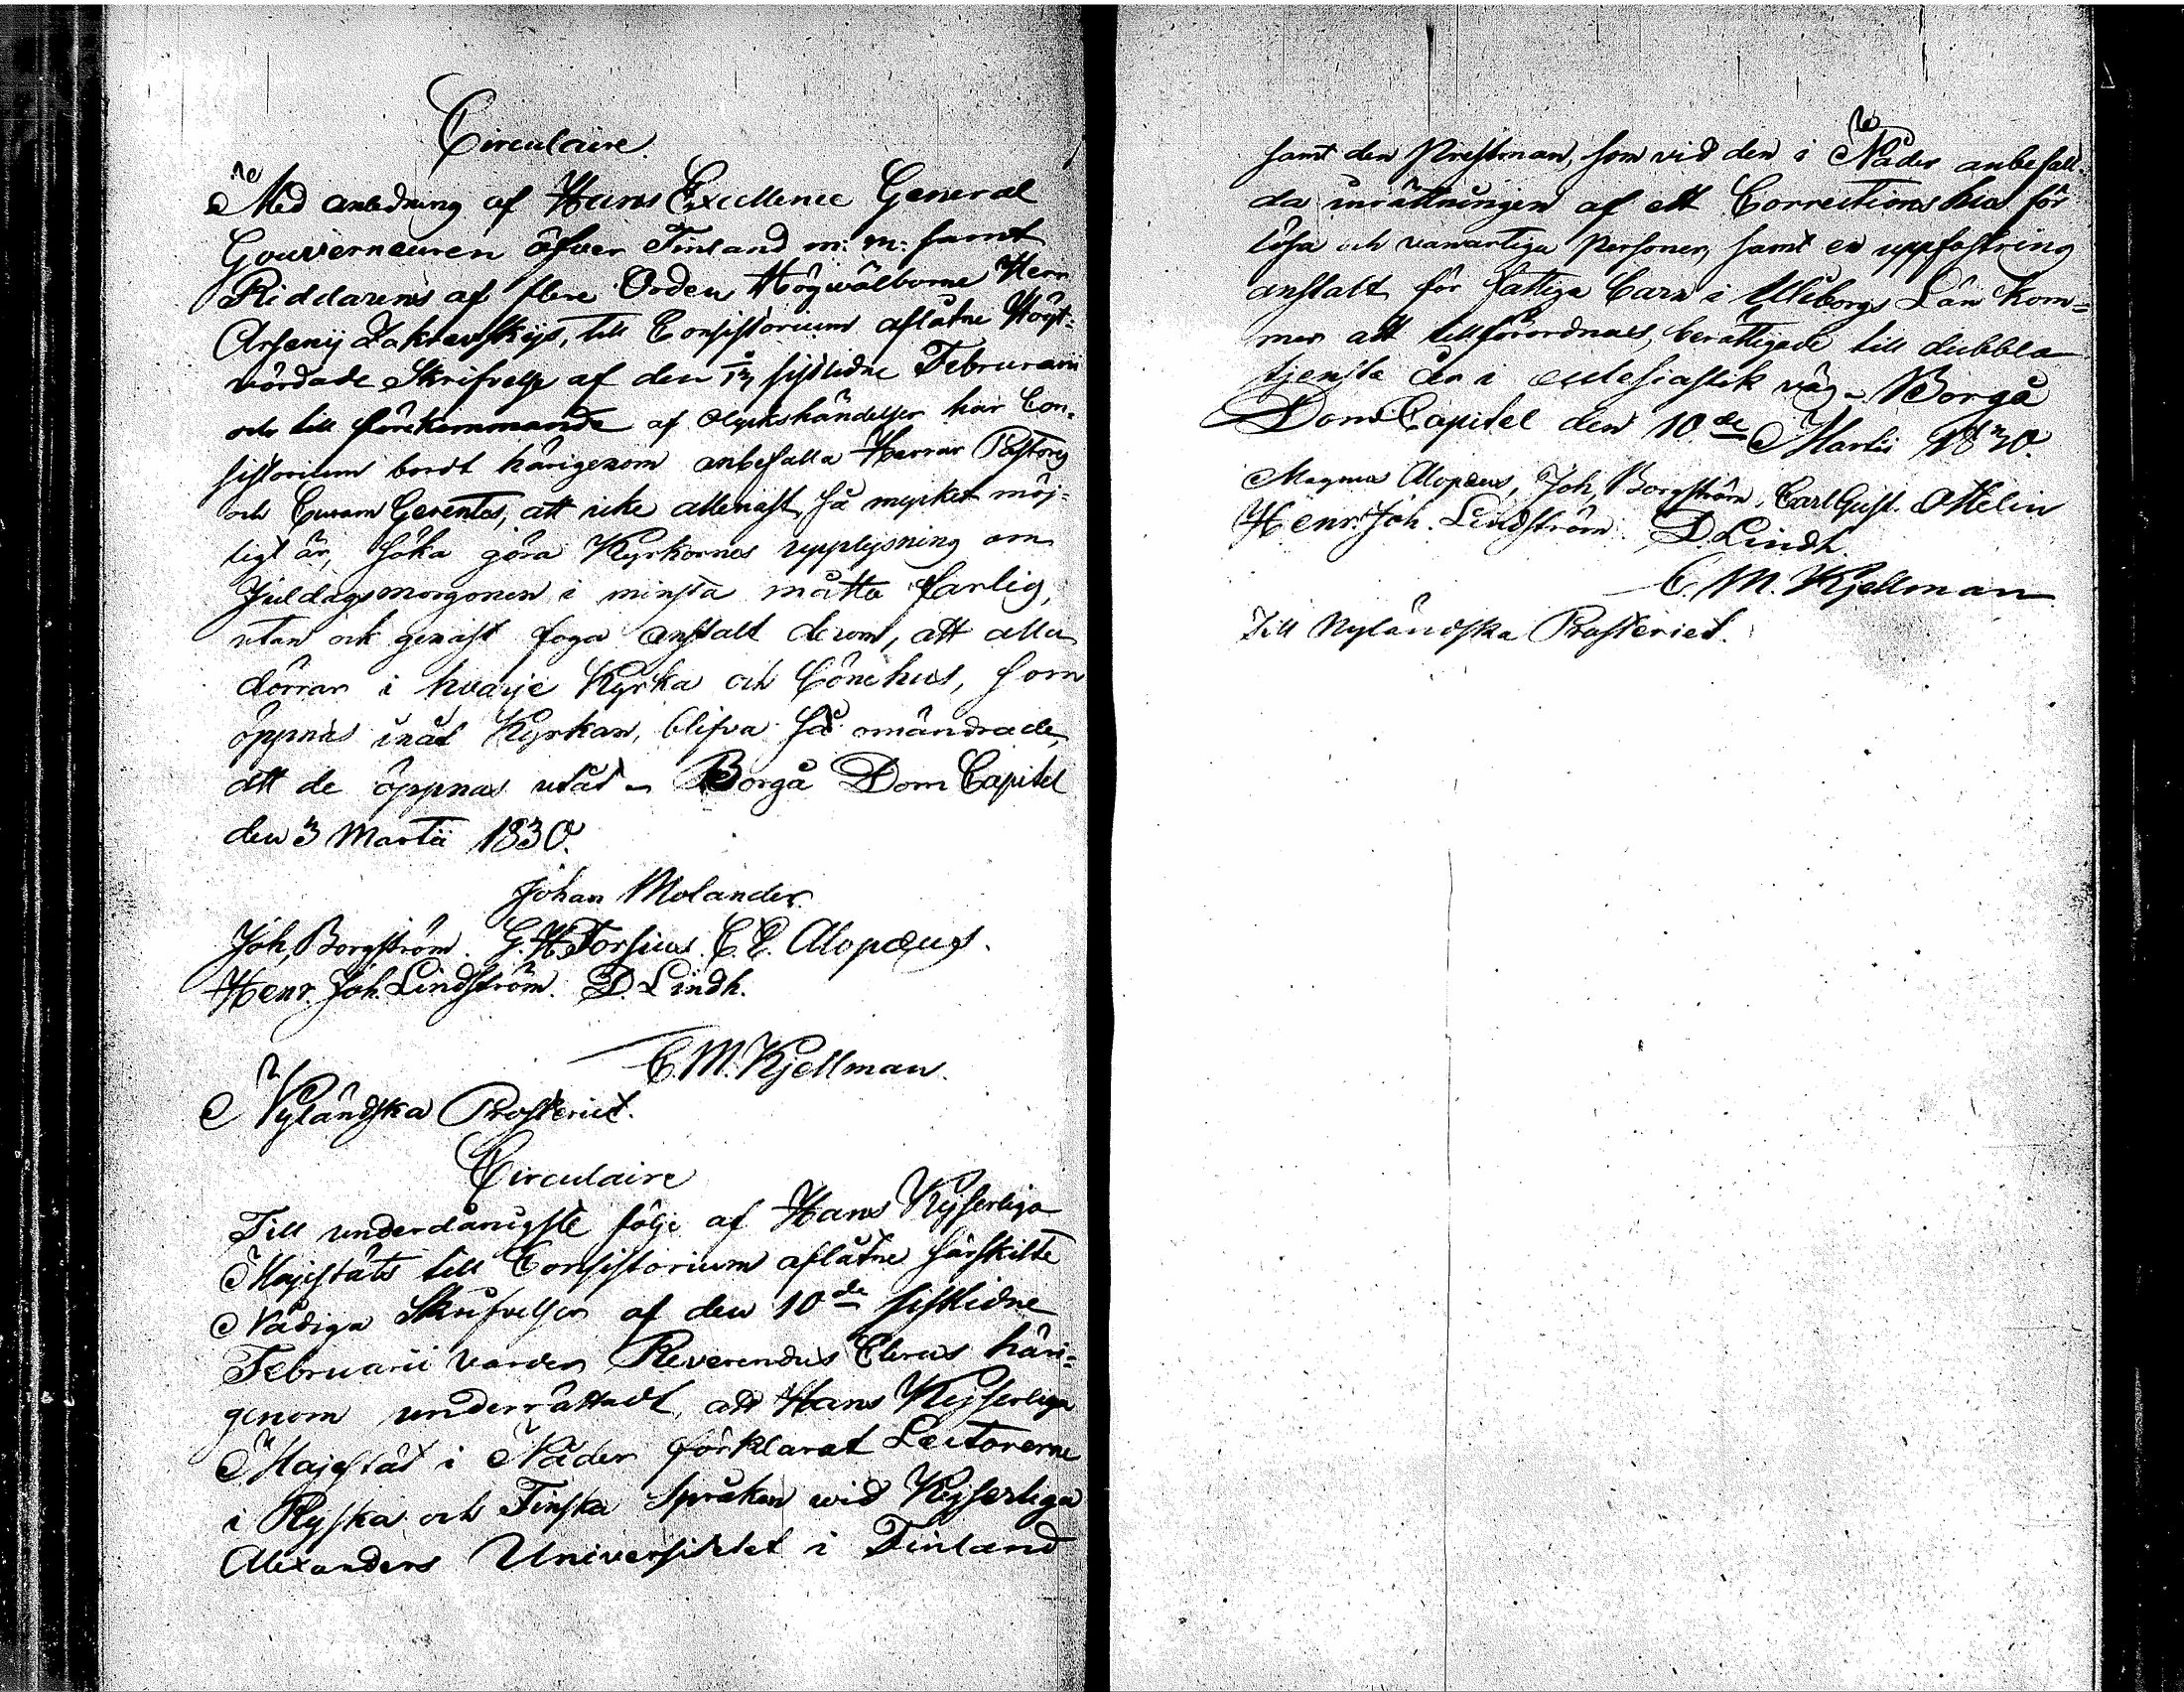 Circulaire.
Med anledning af Hans Excellence General
Gouverneuren öfver Finland m: m: samt
Riddarens af flere Orden Högwälborne Herr
Arsenij Zakrevskijs, till Consistorium aflåtne Högt-
vördade Skrifvelse af den sistledne Februarii
och till förekommande af olyckshändelser har Con-
sistorium bordt härigenom anbefalla Herrar Pastores
och Curam Gerentes, att icke allenast, så mycket möj-
ligt är, söka göra Kyrkornes upplysning om
Juldagsmorgonen i minsta måtto farlig,
utan ock genast foga anstalt derom, att alla
dörrar i hvarje Kyrka och Bönehus, som
öppnas inåt Kyrkan, blifva så omändrade,
att de öppnas utåt. Borgå Dom Capitel
den 3 Martii 1830.
Johan Molander.
Joh, Borgström. G. H. Forsius. C. C. Alopæus.
Henr. Joh. Lindström. D. Lindh.
C. M. Kjellman.
Nyländska Prosteriet.
Circulaire
Till underdånigste följe af Hans Kejserliga
Majestäts till Consistorium aflåtne särskilte
Nådiga Skrifvelser af den 10de sistledne
Februarii varder Reverendus Clerus häri=
genom underrättadt, att Hans Kejserliga
Majestät i Nåder förklarat Lectorerne
i Ryska och Finska Språken wid Kejserliga
Alexanders Universitetet i Finland
samt den Prestman, som vid den i Nåder anbefall-
da inrättningen af ett Corrections hus för
lösa och vanartiga Personer, samt en uppfostrings
anstalt för fattiga barn i Uleåborgs Län kom=
mer att tillförordnas, berättigade till dubbla
tjenste år i ecclesiastik väg. Borgå
Dom Capitel den 10de Martii 1830.
Magnus Alopæus, Joh, Borgström, Carl Gust. Ottelin
Henr. Joh. Lindström. D. Lindh.
C. M. Kjellman
Till Nyländska Prosteriet.